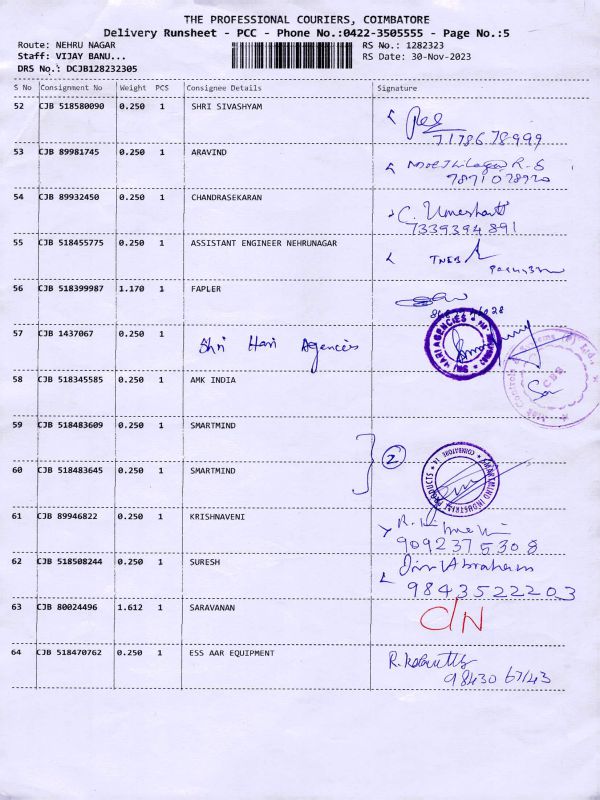 THE PROFESSIONAL COURIERS, COIMBATORE
Delivery Runsheet - PCC - Phone No.:0422-3505555 - Page No.:5
Route: NEHRU NAGAR RS No.: 1282323
Staff: VIJAY BANU... RS Date: 30-Nov-2023
DRS No.: DCJB128232305
S No Consignment No Weight PCS Consignee Details Signature
52 CJB 518580090 0.250 1 SHRI SIVASHYAM
53 CJB 89981745 0.250 1 ARAVIND
7871078920
54 CJB 89932450 0.250 1 CHANDRASEKARAN C. Umeshanth
7339394891
55 CJB 518455775 0.250 1 ASSISTANT ENGINEER NEHRUNAGAR
TNEB
56 CJB 518399987 1.170 1 FAPLER
57 CJB 1437067 0.250 1 Shri Hari Agencies
SRI HARI AGENCIES
58 CJB 518345585 0.250 1 AMK INDIA
59 CJB 518483609 0.250 1 SMARTMIND
2
60 CJB 518483645 0.250 1 SMARTMIND
SMARTMIND INDUSTRIAL PRODUCTS
COIMBATORE
61 CJB 89946822 0.250 1 KRISHNAVENI
9092375308
62 CJB 518508244 0.250 1 SURESH Abraham
9843522203
63 CJB 80024496 1.612 1 SARAVANAN
C/N
64 CJB 518470762 0.250 1 ESS AAR EQUIPMENT
98430 67143